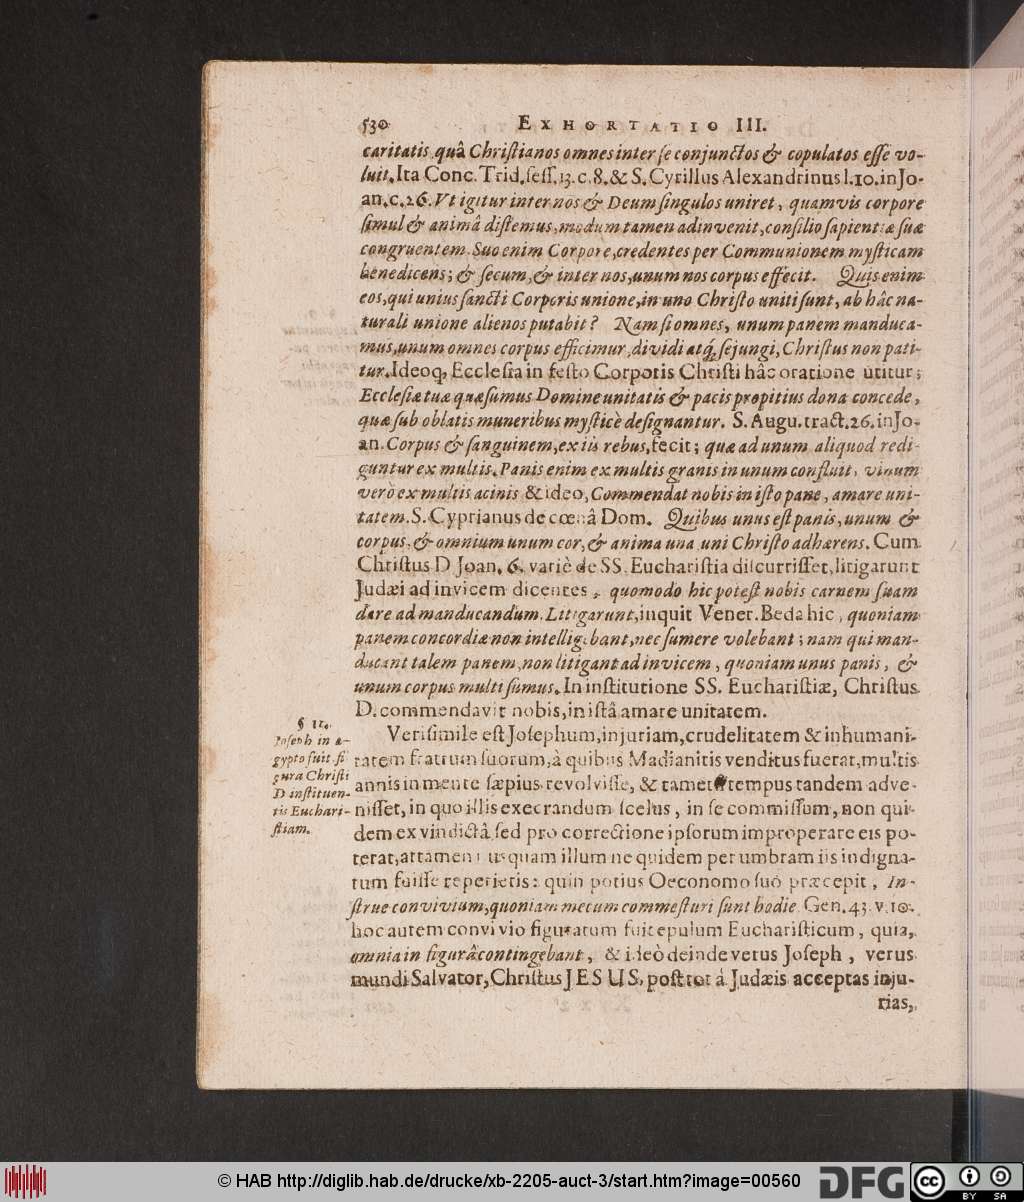 530 EXHORTATIO III.
caritatis quâ Chriſtianos omnes inter ſe conjunctos & copulatos eſſe vo-
luit. Ita Conc. Trid. ſeſſ. 13. c. 8. & S. Cyrillus Alexandrinus l. 10. in Jo-
an. c. 26. Vt igitur inter nos & Deum ſingulos uniret, quamvis corpore
ſimul & animâ diſtemus, modum tamen adinvenit, conſilio ſapientiæ ſuæ
congruentem. Suo enim Corpore, credentes per Communionem myſticam
benedicens; & ſecum, & inter nos, unum nos corpus effecit. Quis enim
eos, qui unius ſancti Corporis unione, in uno Chriſto uniti ſunt, ab hâc na-
turali unione alienos putabit? Nam ſi omnes, unum panem manduca-
mus, unum omnes corpus efficimur, dividi atq́; ſejungi, Chriſtus non pati-
tur. Ideoq; Eccleſia in feſto Corporis Chriſti hâc oratione utitur;
Eccleſiæ tuæ quæſumus Domine unitatis & pacis propitius dona concede,
quæ ſub oblatis muneribus myſticè deſignantur. S. Augu. tract. 26. in Jo-
an. Corpus & ſanguinem, ex iis rebus, fecit; quæ ad unum aliquod redi-
guntur ex multis. Panis enim ex multis granis in unum confluit, vinum
verò ex multis acinis & ideo, Commendat nobis in iſto pane, amare uni-
tatem. S. Cyprianus de cœnâ Dom. Quibus unus eſt panis, unum &
corpus, & omnium unum cor, & anima una uni Chriſto adhærens. Cum
Chriſtus D Joan. 6. variè de SS. Euchariſtia diſcurriſſet, litigarunt
Judæi ad invicem dicentes, quomodo hic poteſt nobis carnem ſuam
dare ad manducandum. Litigarunt, inquit Vener. Beda hic, quoniam
panem concordiæ non intelligebant, nec ſumere volebant; nam qui man-
ducant talem panem, non litigant ad invicem, quoniam unus panis, &
unum corpus multi ſumus. In inſtitutione SS. Euchariſtiæ, Chriſtus
D. commendavit nobis, in iſtâ amare unitatem.
§ 11.
Joſeph in æ-
gypto fuit fi
gura Chriſti
D inſtituen-
tis Euchari-
ſtiam.
Veriſimile eſt Joſephum, injuriam, crudelitatem & inhumani-
tatem fratrum ſuorum, à quibus Madianitis venditus fuerat, multis
annis in mente ſæpius revolviſſe, & tametſi tempus tandem adve-
niſſet, in quo illis execrandum ſcelus, in ſe commiſſum, non qui-
dem ex vindictâ ſed pro correctione ipſorum improperare eis po-
terat, attamen nusquam illum ne quidem per umbram iis indigna-
tum fuiſſe reperietis: quin potius Oeconomo ſuo præcepit, In-
ſtrue convivium, quoniam mecum comeſturi ſunt hodie. Gen. 43. v. 10.
hoc autem convivio figuratum fuit epulum Euchariſticum, quia,
omnia in figurâ contingebant, & ideò deinde verus Joſeph, verus
mundi Salvator, Chriſtus JESUS, poſt tot á Judæis acceptas inju-
rias,
© HAB http://diglib.hab.de/drucke/xb-2205-auct-3/start.htm?image=00560
DFG
cc BY SA